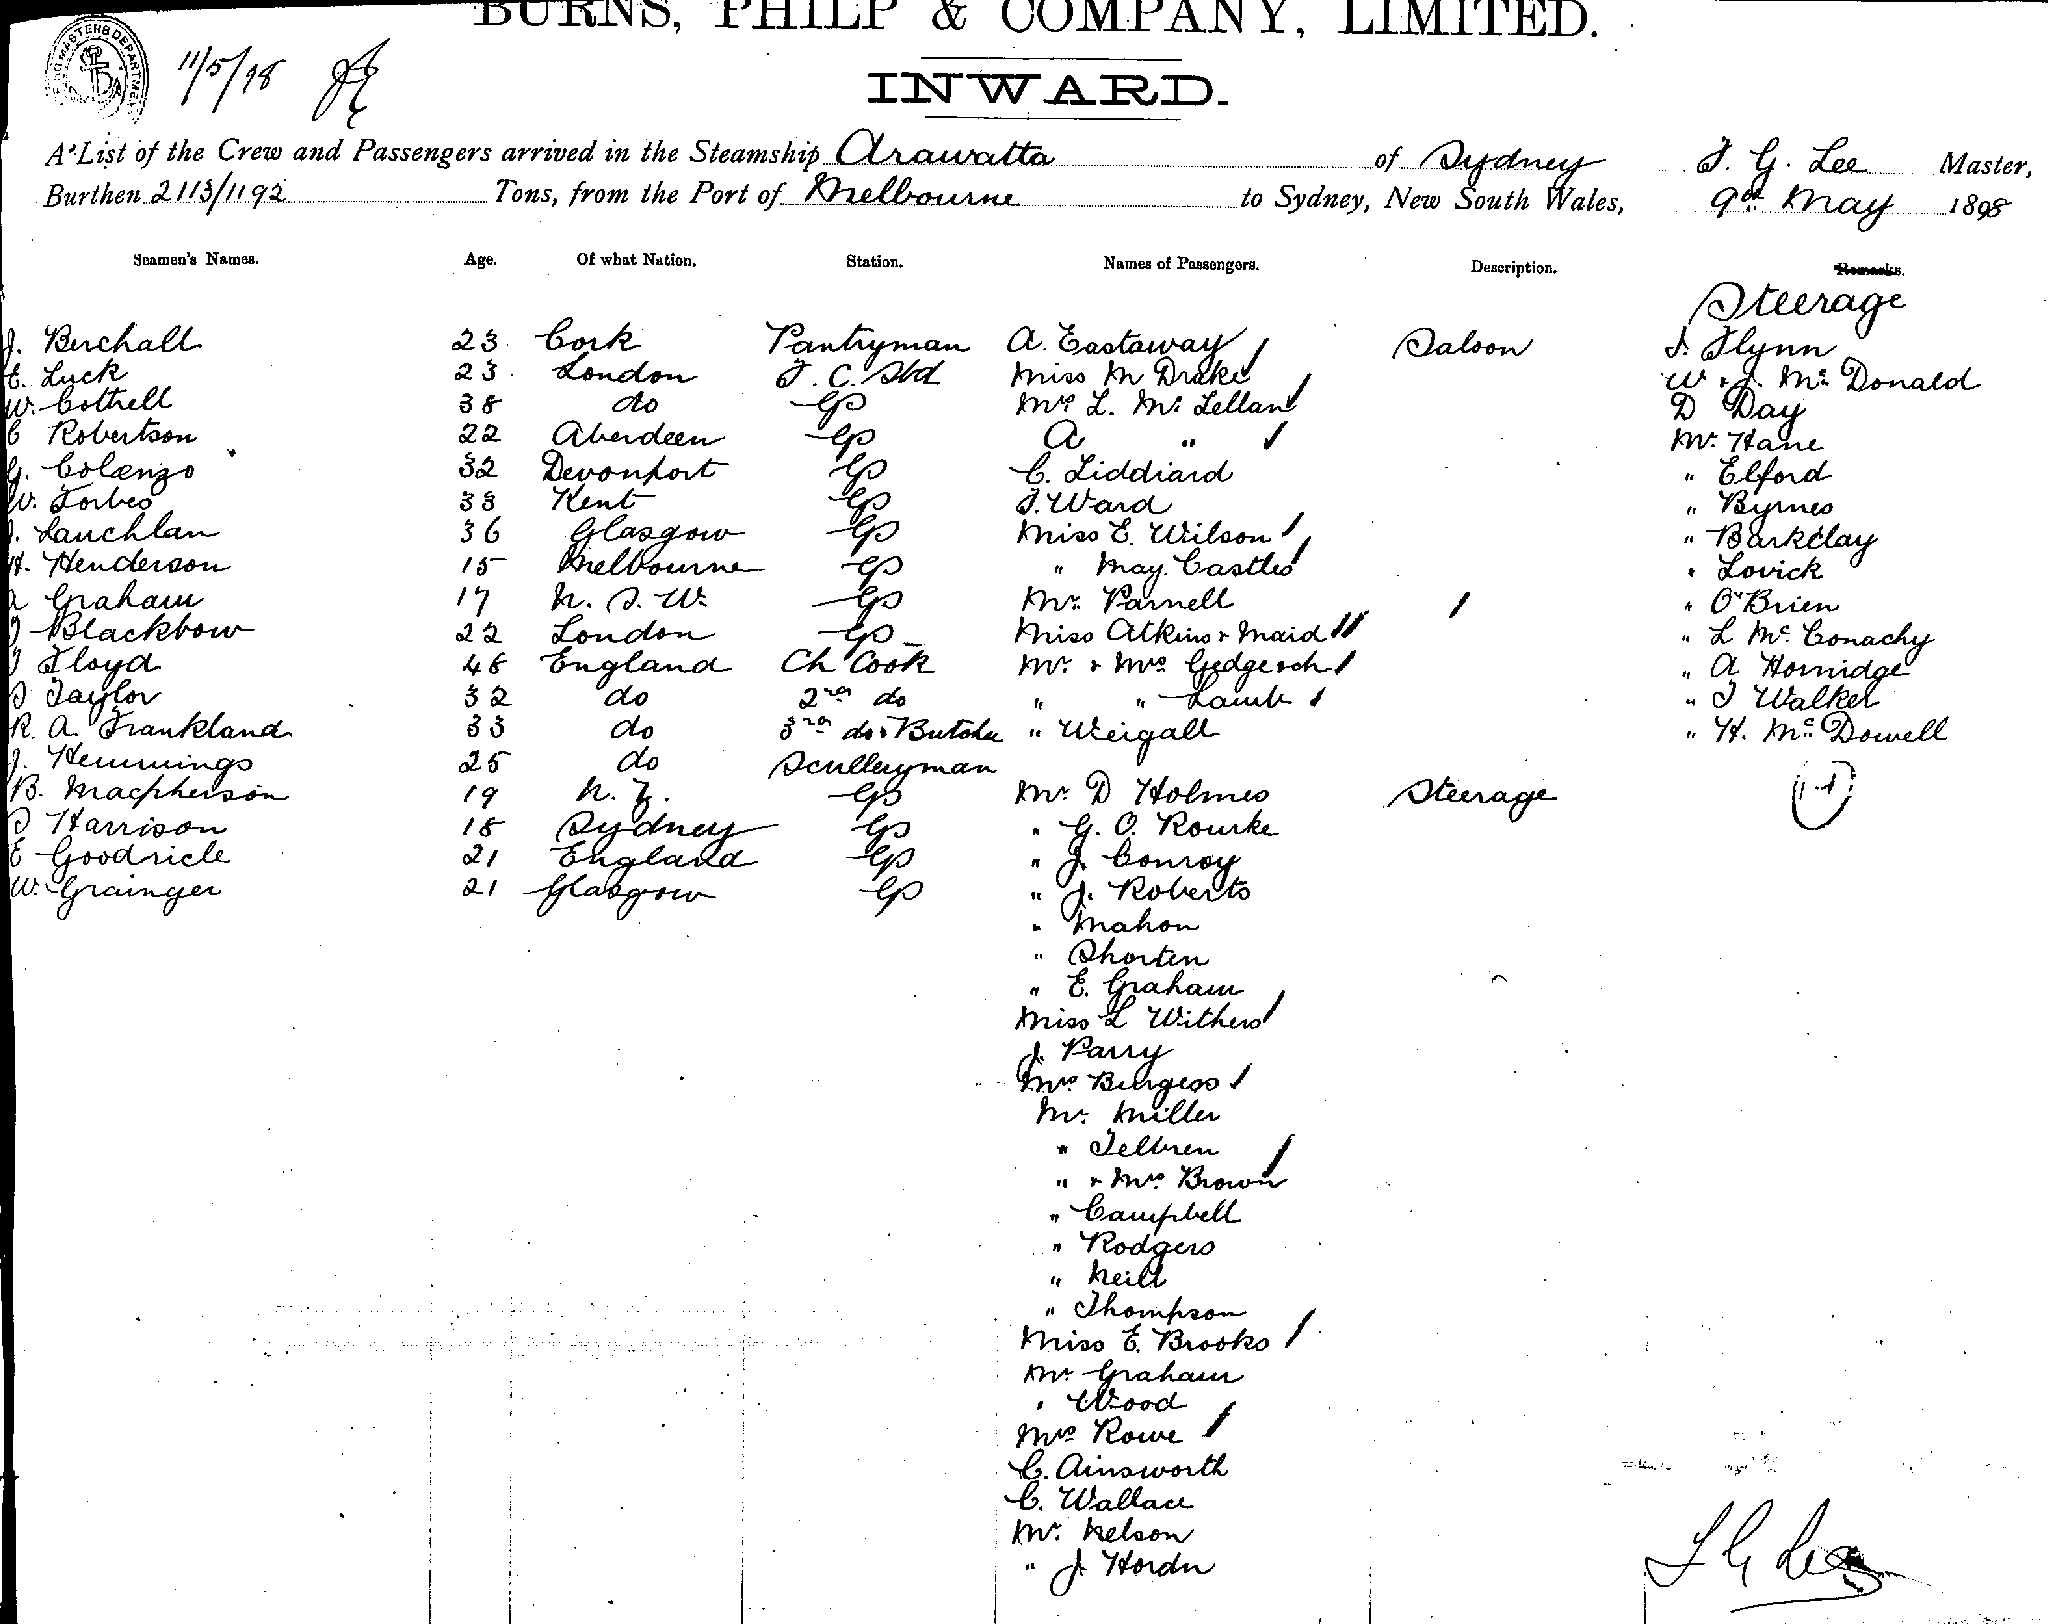 BURNS, PHILP & COMPANY, LIMITED.
11/5/98
INWARD.
A List of the Crew and Passengers arrived in the Steamship Arawatta of Sydney T. G. Lee Master,
Burthen 2113/1192 Tons, from the Port of Melbourne to Sydney, New South Wales, 9th May 1898
Seamen's Names. Age. Of what Nation. Station. Names of Passengers. Description. Remarks.
Steerage
J. Berchall 23 Cork Pantryman A. Eastaway Saloon J. Flynn
E. Luck 23 London F. C. Std Miss M Drake W & J. Mc Donald
W. Cottrell 38 do Mrs L. Mc Lellan D Day
C Robertson 22 Aberdeen A " Mr. Hane
G. Colenzo 32 Devonport C. Liddiard " Elford
W. Forbes 33 Kent J. Ward " Byrnes
J. Lauchlan 36 Glasgow Miss E. Wilson " Barkclay
H. Henderson 15 Melbourne " May Castles " Lovick
Graham 17 N. S. W. Mr. Parnell " O'Brien
Blackbow 22 London Miss Atkins & Maid " L Mc Conachy
Floyd 46 England Ch Cook Mr. & Mrs " A Hornidge
Taylor 32 do 2nd do " " Lamb " J Walker
R. A. Frankland 33 do 3rd do & Butcher " Weigall " H. Mc Dowell
J. Hemmings 25 do Sculleryman
B. Macpherson 19 N. Z. Mr. D Holmes Steerage
Harrison 18 Sydney " G. O. Rourke
E Goodricle 21 England " J. Conroy
W. Grainger 21 Glasgow " J. Roberts
" Mahon
" Shorten
" E. Graham
Miss L Withers
J. Parry
Mrs Burgess
Mr. Miller
" Telbren
" & Mrs Brown
" Campbell
" Rodgers
" Neill
" Thompson
Miss E. Brooks
Mr Graham
" Wood
Mrs Rowe
C. Ainsworth
C. Wallace
Mr. Nelson
" J. Hordn
T G Lee